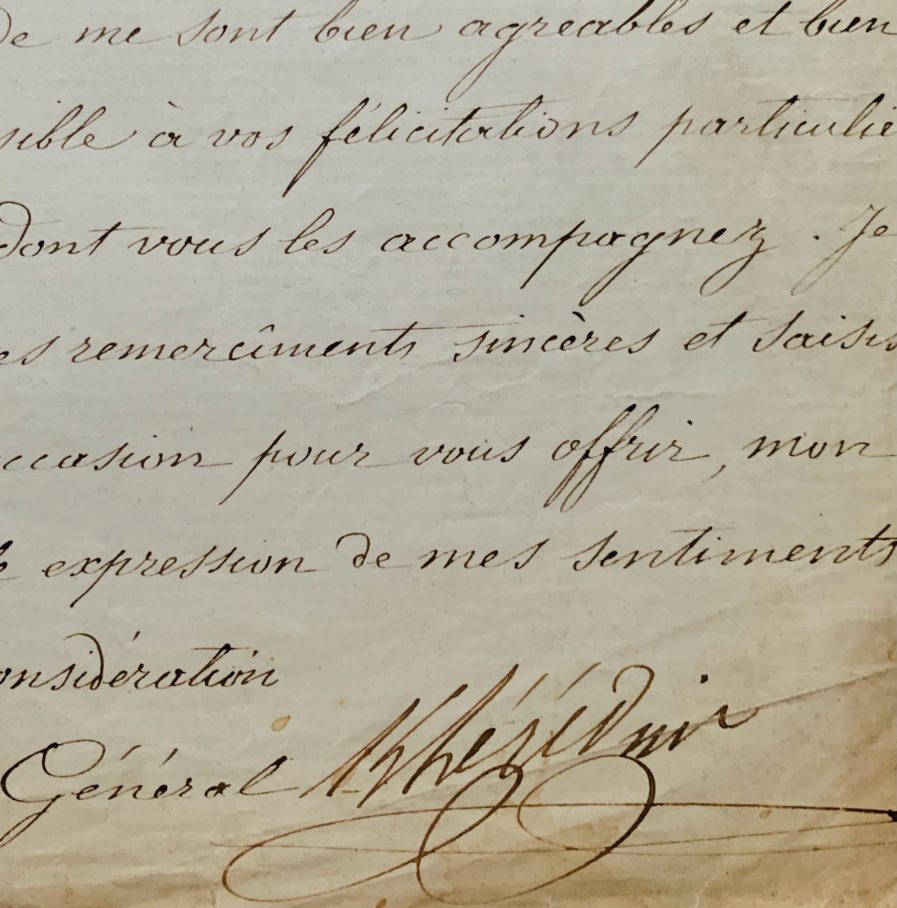 de me sont bien agréables et bien
sible à vos félicitations particuliè
dont vous les accompagnez. Je
es remercîments sincères et saisis
ccasion pour vous offrir, mon
e expression de mes sentiments
onsidération
Général Khérédin